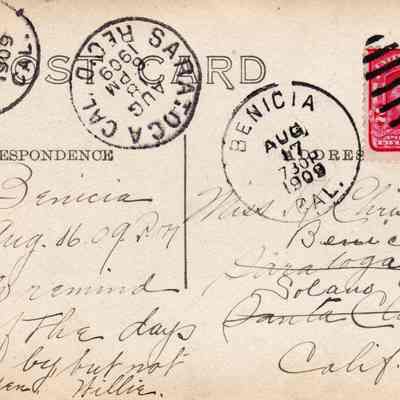 1909
CAL.
POST CARD
SARATOGA CAL.
REC'D.
AUG
8 PM
1909
BENICIA
AUG
17
730P
1909
CAL.
RESPONDENCE
DRES
Benicia
Aug. 16. 09 P.M
remind
of the days
by but not
Willie.
Miss
Benic
Saratoga
Solano
Santa Cla
Calif.